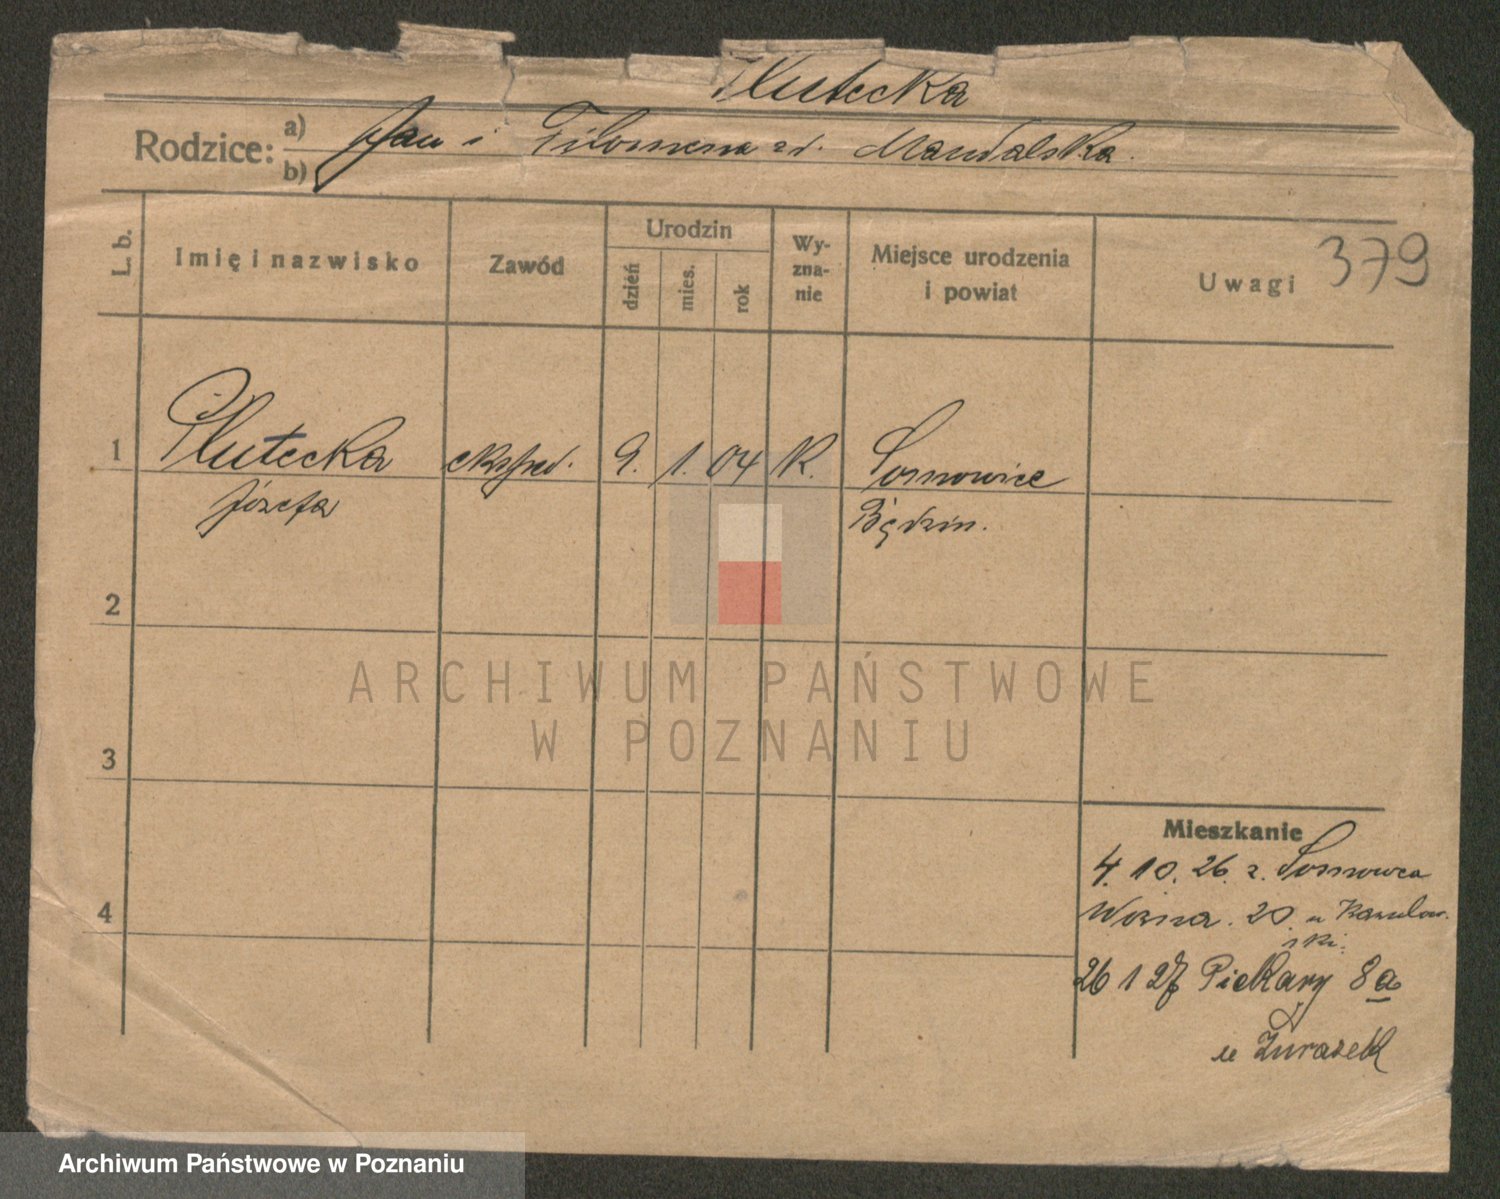 Plutecka
Rodzice: a) Jan i Filomena zd. Mandalska.
b)
L. b.
Imię i nazwisko
Zawód
Urodzin
dzień
mies.
rok
Wy-
zna-
nie
Miejsce urodzenia
i powiat
Uwagi
379
1 Plutecka ekspied. 9. 1. 04 K. Sosnowice
Józefa Będzin.
2
3
4
Mieszkanie
4. 10. 26. z. Sosnowca
Woźna. 20. u
ski.
26 1 27 Piekary 8a
u Żurasek
ARCHIWUM PAŃSTWOWE
W POZNANIU
Archiwum Państwowe w Poznaniu